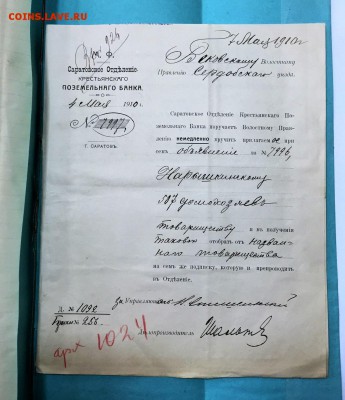 COINS.LAVE.RU
7 Мая 1910 г
Саратовское Отдѣленіе
КРЕСТЬЯНСКАГО
ПОЗЕМЕЛЬНАГО БАНКА.
4 Мая 1910 г.
№
Г. САРАТОВЪ.
Бековскому Волостному
Правленію Сердобскаго уѣзда.
Саратовское Отдѣленіе Крестьянскаго По-
земельнаго Банка поручаетъ Волостному Прав-
ленію немедленно вручить прилагаемое при
семъ объявленіе за № 7996,
Нарышкинскому
507 домохозяевъ
товариществу и въ полученіи
такового отобрать отъ назван-
наго товарищества
на семъ же подписку, которую и препроводить
въ Отдѣленіе.
За Управляющаго
Дѣлопроизводитель
Д. № 1092
256
арх 1024